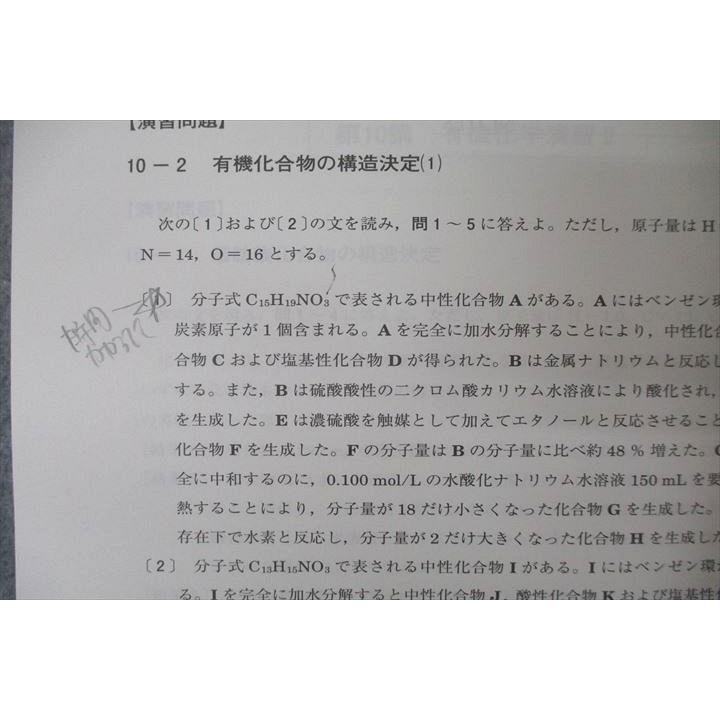 【演習問題】
10－2　有機化合物の構造決定(1)
次の〔1〕および〔2〕の文を読み，問1～5に答えよ。ただし，原子量はH
N＝14，O＝16とする。
〔1〕 分子式C₁₅H₁₉NO₃で表される中性化合物Aがある。Aにはベンゼン環
炭素原子が1個含まれる。Aを完全に加水分解することにより，中性化合
合物Cおよび塩基性化合物Dが得られた。Bは金属ナトリウムと反応し
する。また，Bは硫酸酸性の二クロム酸カリウム水溶液により酸化され，
を生成した。Eは濃硫酸を触媒として加えてエタノールと反応させること
化合物Fを生成した。Fの分子量はBの分子量に比べ約48％増えた。
全に中和するのに，0.100 mol/Lの水酸化ナトリウム水溶液150 mLを要
熱することにより，分子量が18だけ小さくなった化合物Gを生成した。
存在下で水素と反応し，分子量が2だけ大きくなった化合物Hを生成した
〔2〕 分子式C₁₃H₁₅NO₃で表される中性化合物Iがある。Iにはベンゼン環
る。Iを完全に加水分解すると中性化合物J，酸性化合物Kおよび塩基性化